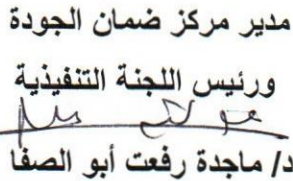 مدير مركز ضمان الجودة
ورئيس اللجنة التنفيذية
د/ ماجدة رفعت أبو الصفا